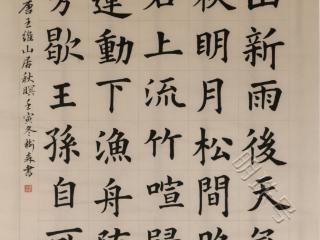 山新雨後天氣
秋明月松間
石上流竹喧歸
蓮動下漁舟隨
芳歇王孫自可
唐王維山居秋暝壬寅冬樹森書